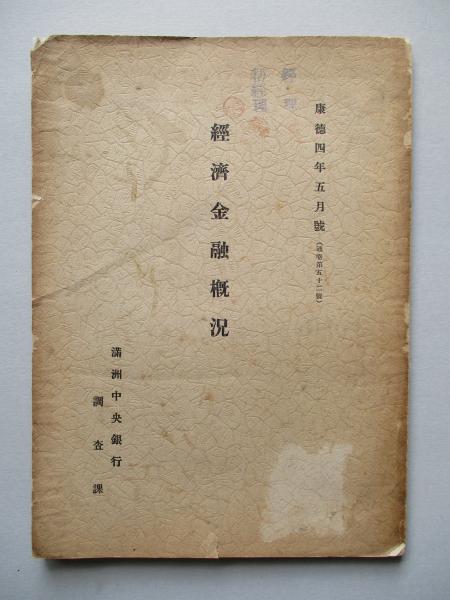 康德四年五月號（通卷第五十二號）
經理
副經理
經濟金融概況
滿洲中央銀行
調査課